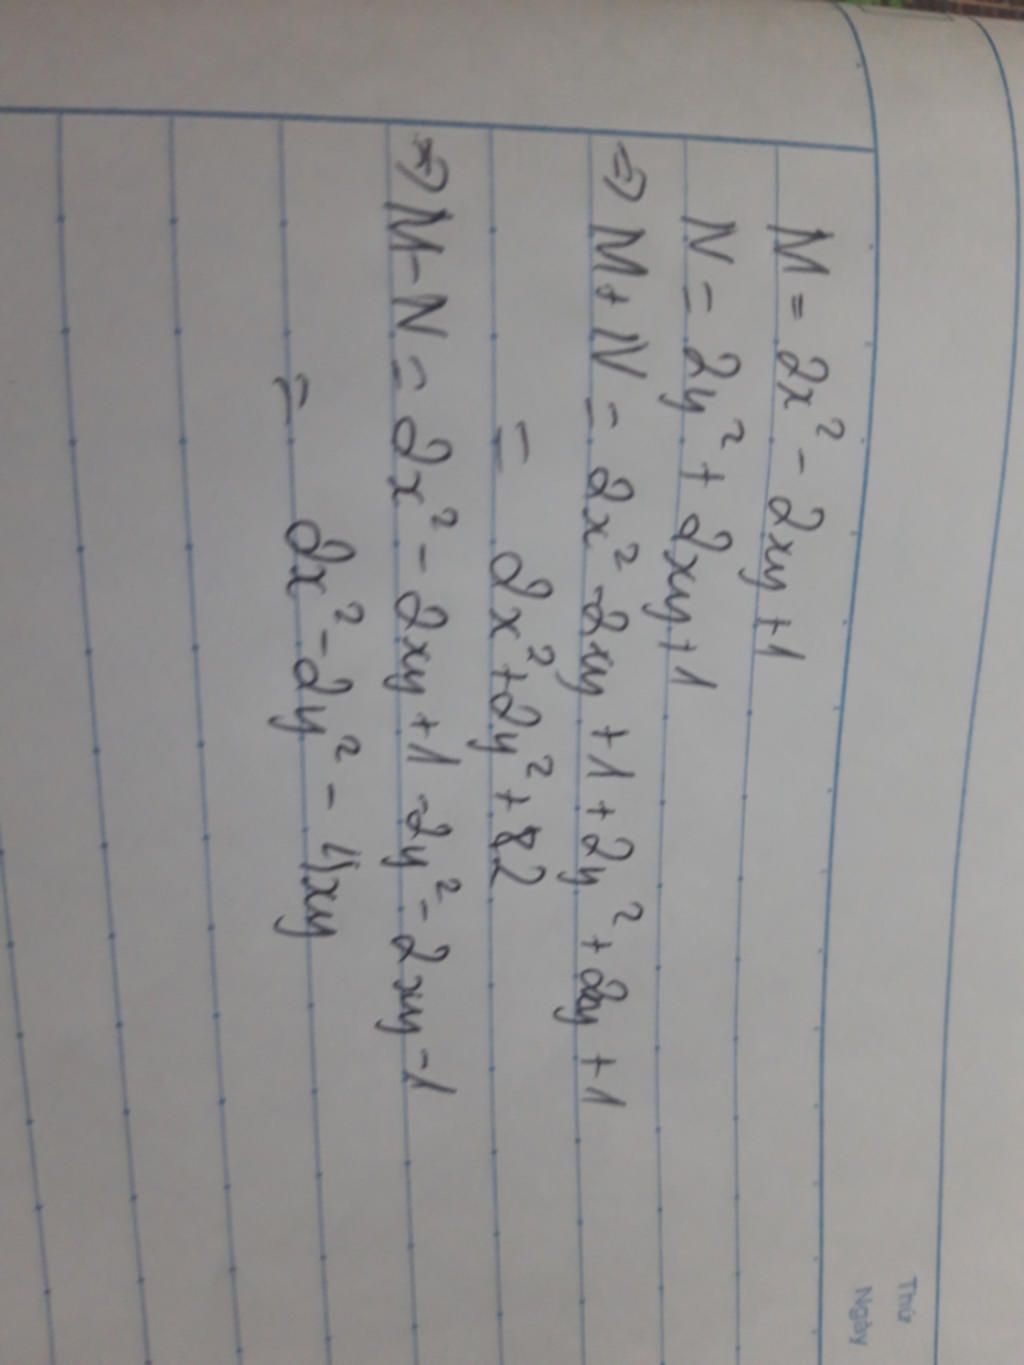 Thứ
Ngày
M = 2x² - 2xy + 1
N = 2y² + 2xy + 1
=> M + N = 2x² - 2xy + 1 + 2y² + 2xy + 1
= 2x² + 2y² + 2
=> M - N = 2x² - 2xy + 1 - 2y² - 2xy - 1
= 2x² - 2y² - 4xy